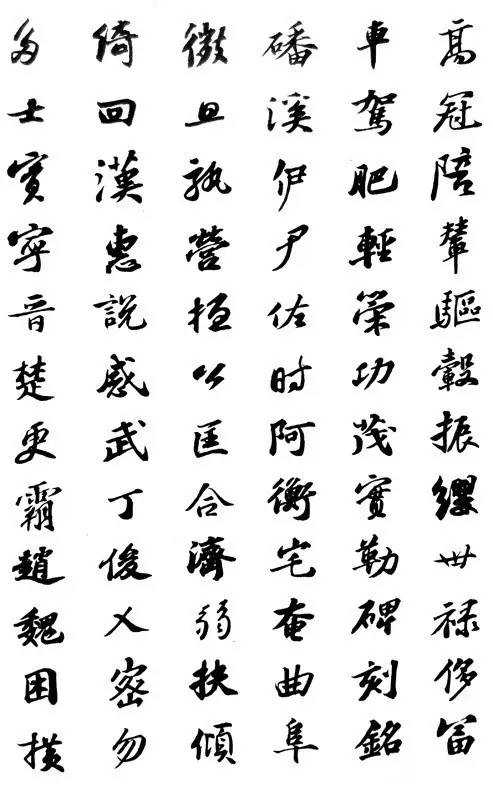 高冠陪輦驅轂振纓世禄侈富
車駕肥輕策功茂實勒碑刻銘
磻溪伊尹佐时阿衡宅奄曲阜
微旦孰營桓公匡合濟弱扶傾
綺回漢惠說感武丁俊乂密勿
多士實寧晋楚更霸趙魏困横